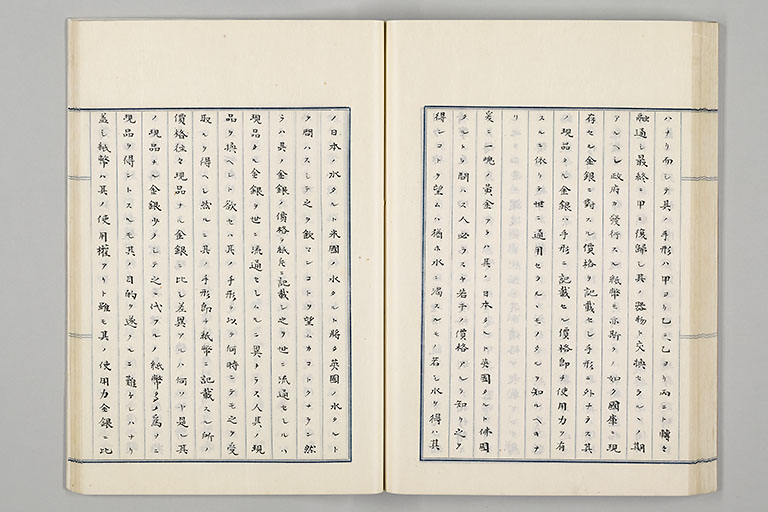 ハナリ而シテ其ノ手形ハ甲ヨリ乙ニ乙ヨリ丙ニト轉々
融通シ最終ニ甲ニ復歸シ其ノ器物ト交換セラルヽノ期
アルヘシ政府カ發行スル紙幣モ亦斯クノ如ク國庫ニ現
存セル金銀ニ對スル價格ヲ記載セシ手形ニ外ナラス其
ノ現品タル金銀ハ手形ニ記載セル價格即チ使用力ヲ有
スルニ依リテ世ニ通用セラルヽモノタルヲ知ルヘキナ
リ
爰ニ一塊ノ黄金アラハ其ノ日本タルト英國タルト佛國
タルトヲ問ハス人必ラスヤ若干ノ價格アルヲ知リ之ヲ
得ンコトヲ望ムハ猶ホ水ニ渇スルモノヽ若シ水ヲ得ハ其
ノ日本ノ水タルト米國ノ水タルト將タ英國ノ水タルト
ヲ問ハスシテ之ヲ飲マンコトヲ望ムカコトクナラン然
ラハ其ノ金銀ノ價格ヲ紙片ニ記載シ之ヲ世ニ流通セシムルハ
現品タル金銀ヲ世ニ流通セシムルニ異ナラス人其ノ現
品ヲ換ヘント欲セハ其ノ手形ヲ以テ何時ニテモ之ヲ受
取ルヲ得ヘシ然ルニ其ノ手形即チ紙幣ニ記載スル所ノ
價格往々現品ナル金銀ニ比シ差異アルハ何ソヤ是レ其
ノ現品タル金銀少クシテ之ニ代フルノ紙幣多キ爲メニ
現品ヲ得ントスルモ其ノ目的ヲ遂クルニ難ケレハナリ
蓋シ紙幣ハ其ノ使用權アリト雖モ其ノ使用力金銀ニ比